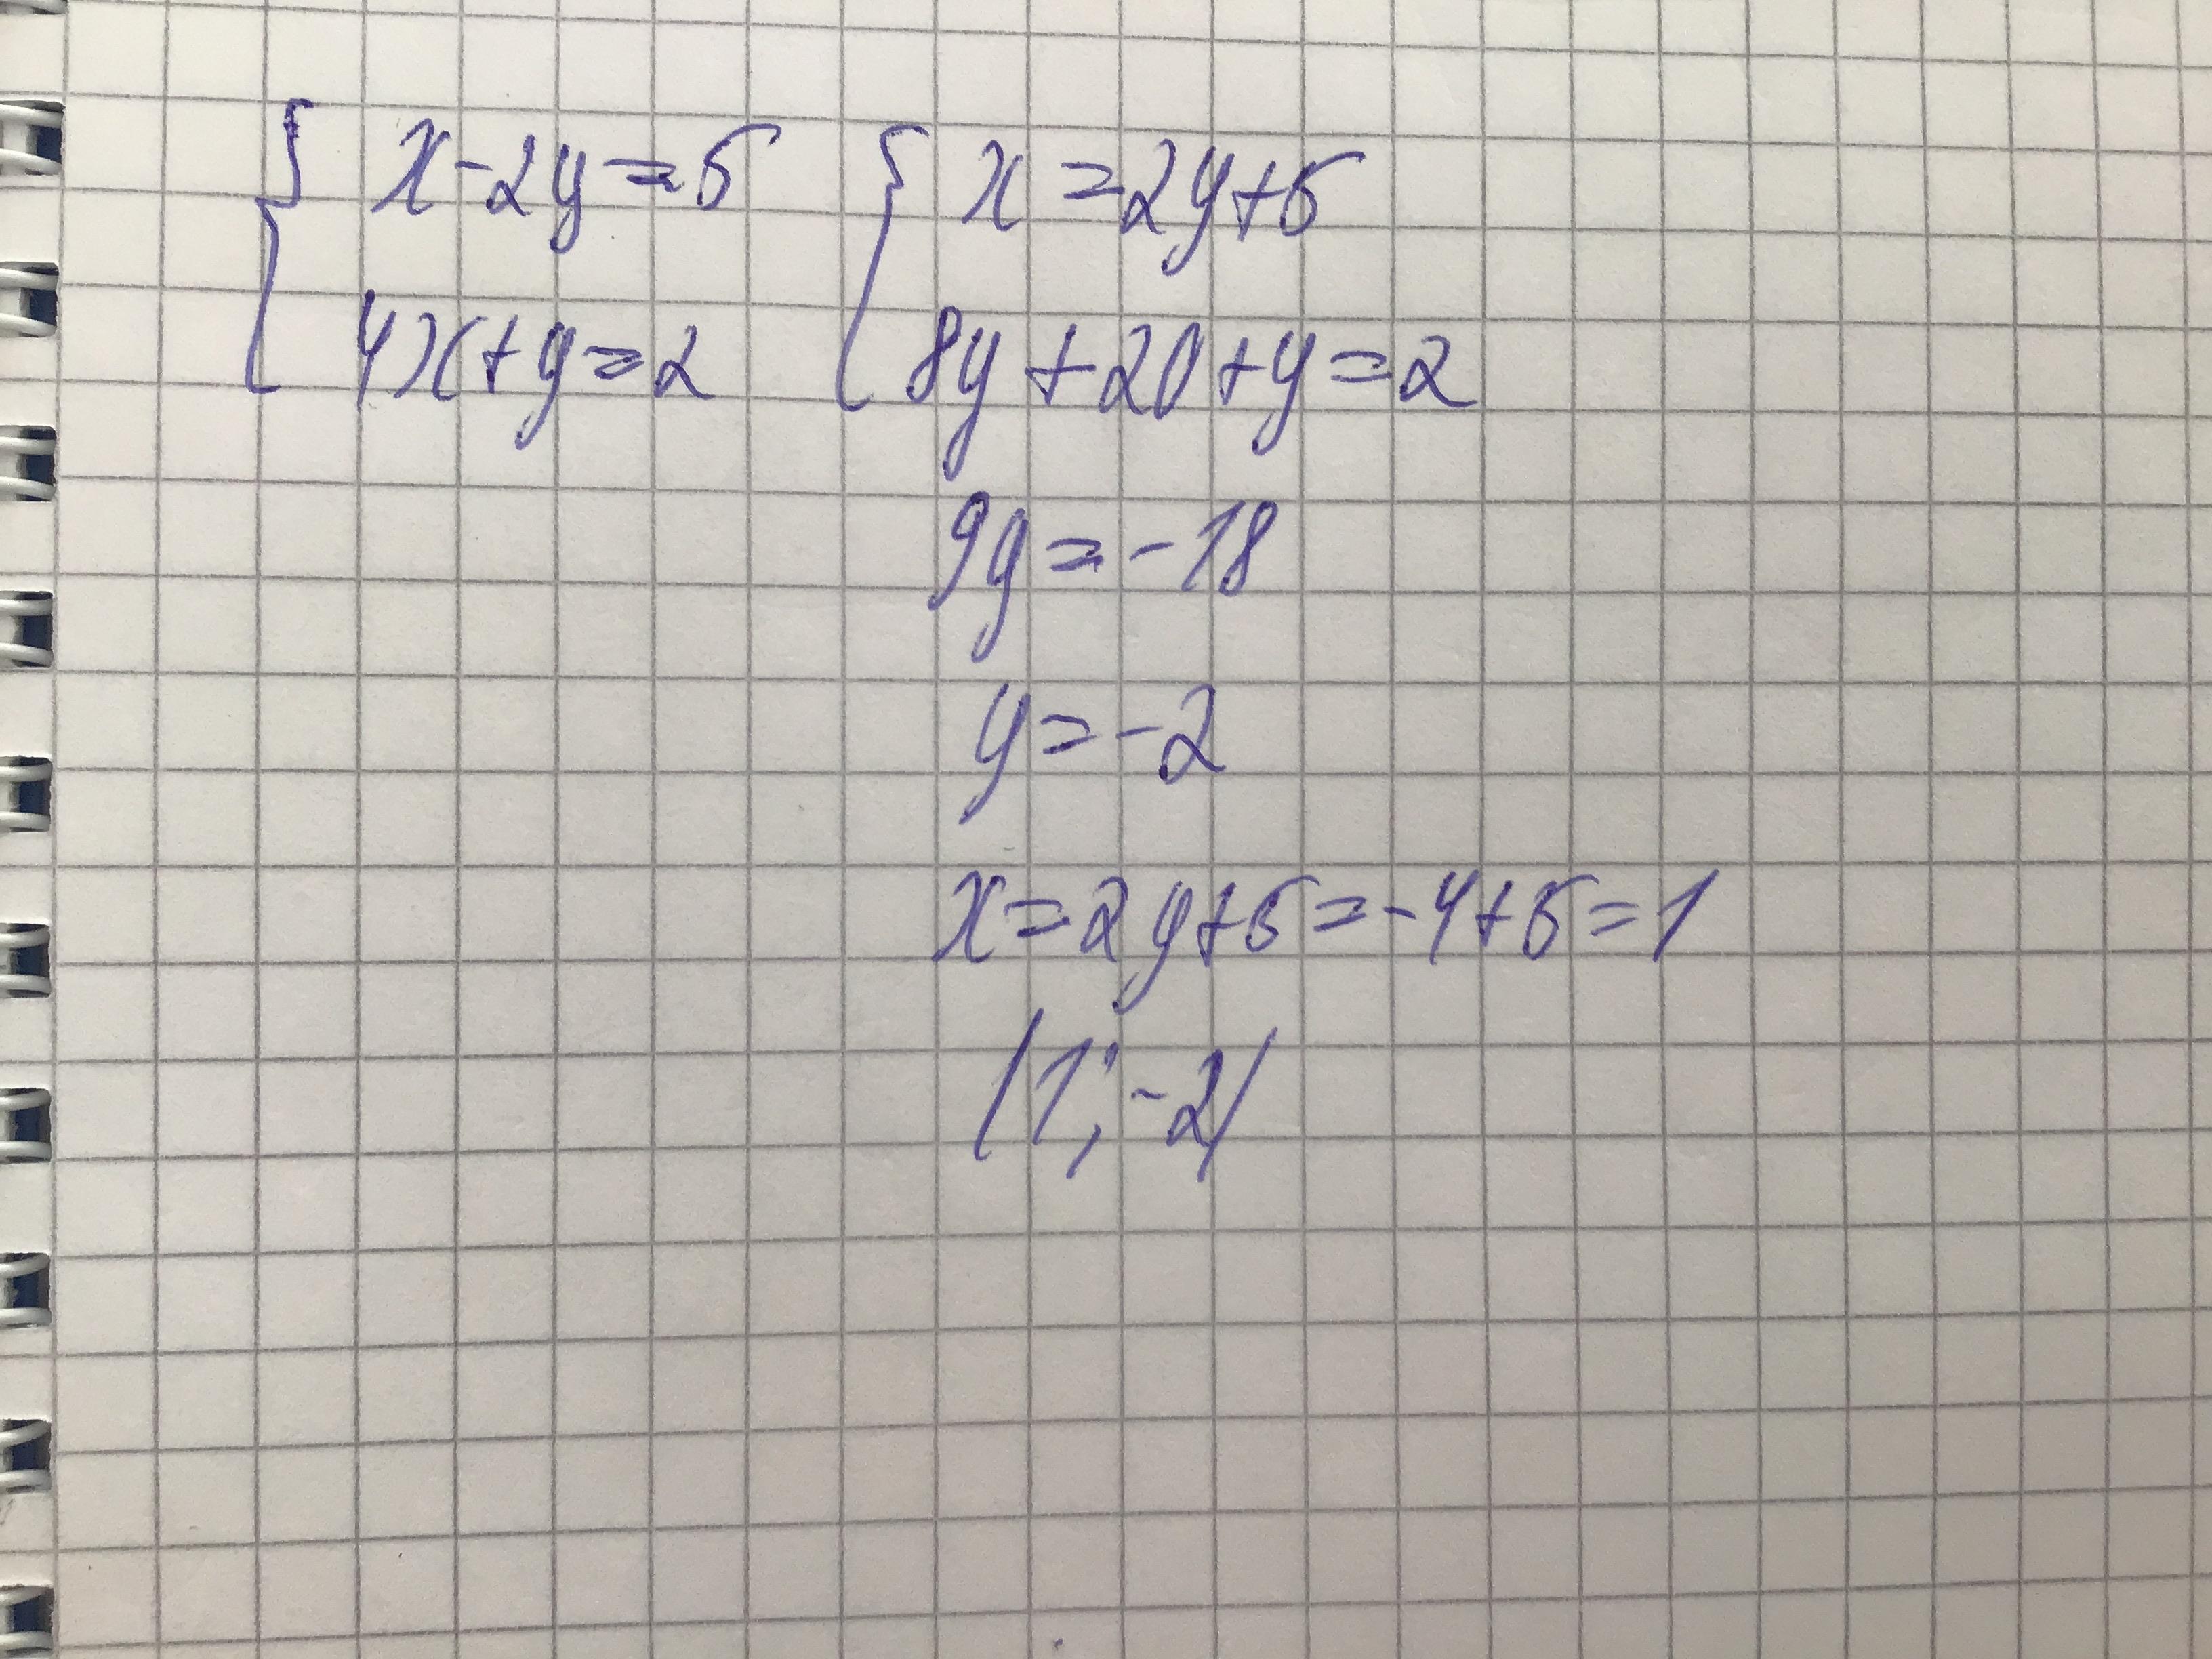 { x-2y=5 { x=2y+5
4x+y=2 8y+20+y=2
9y=-18
y=-2
x=2y+5=-4+5=1
(1;-2)